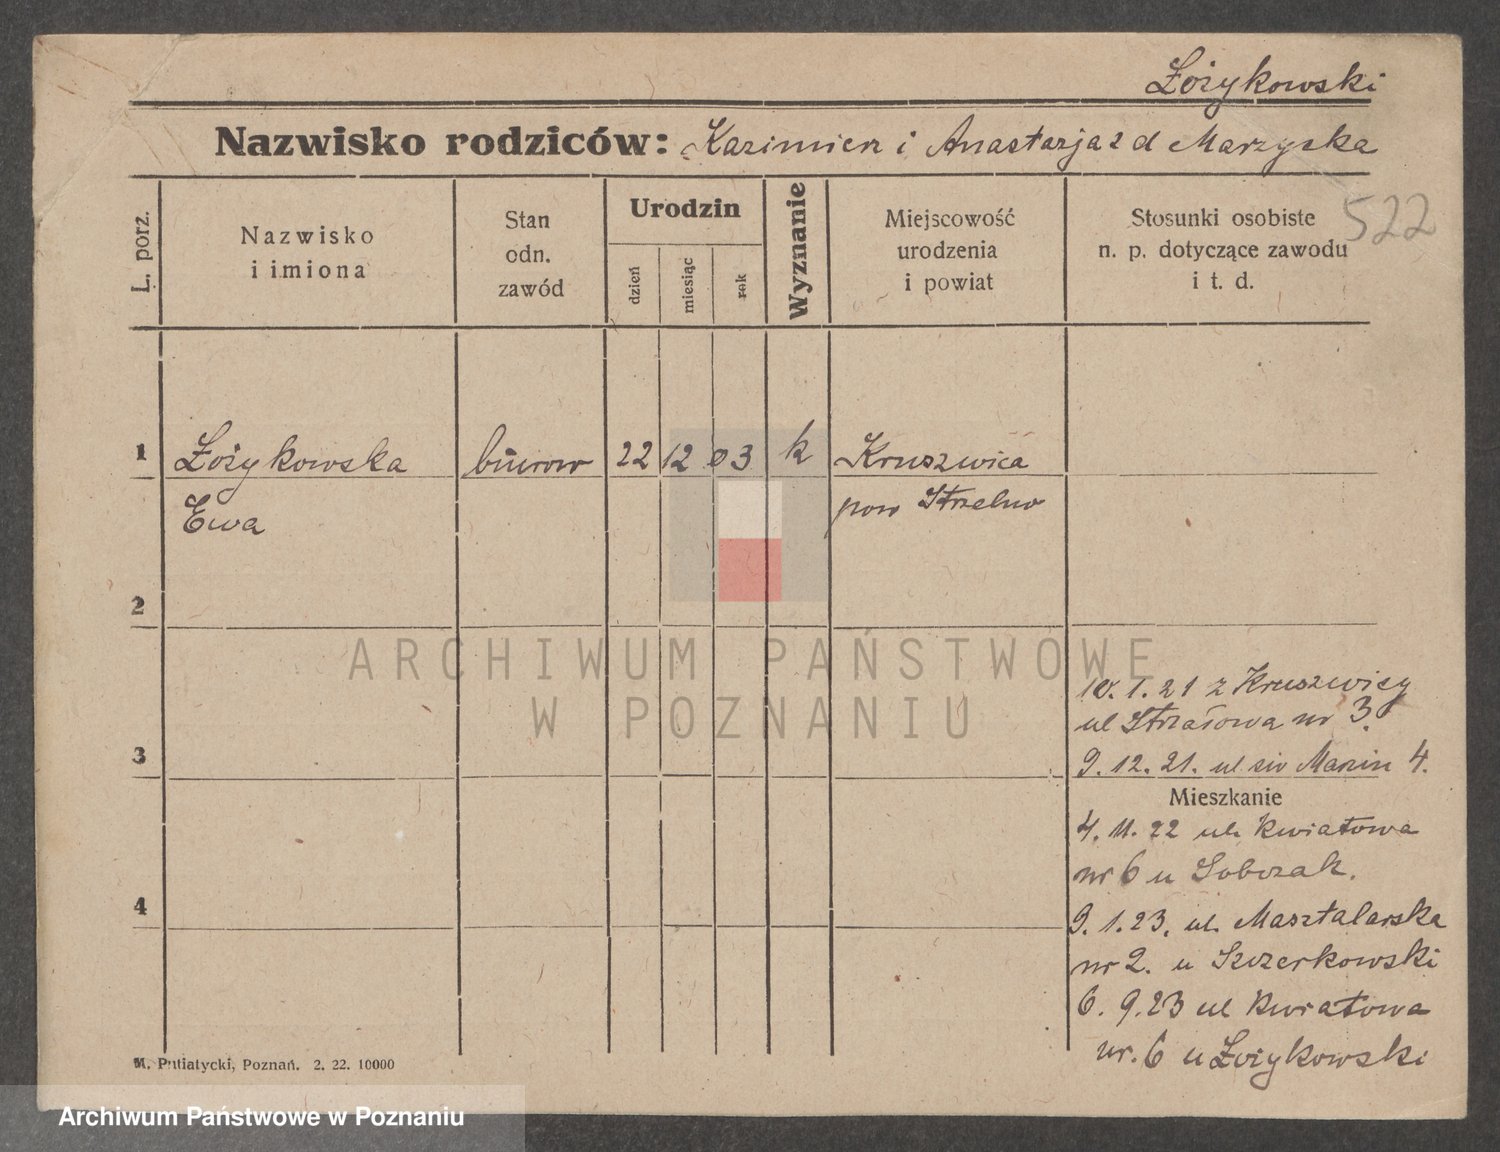 Łożykowski
Nazwisko rodziców: Kazimierz i Anastazja z d Marzyska
522
L. porz.
Nazwisko
i imiona
Stan
odn.
zawód
Urodzin
dzień
miesiąc
rok
Wyznanie
Miejscowość
urodzenia
i powiat
Stosunki osobiste
n. p. dotyczące zawodu
i t. d.
1
Łożykowska
biurow
22
12
03
k
Kruszwica
Ewa
pow Strzelno
2
ARCHIWUM PAŃSTWOWE
W POZNANIU
10. 1. 21 z Kruszwicy
ul Strzałowa nr 3.
3
9. 12. 21. ul św Marcin 4.
Mieszkanie
4. 11. 22 ul. Kwiatowa
nr 6 u Sobczak.
4
9. 1. 23. ul. Masztalarska
nr 2. u Szczerkowski
6. 9. 23 ul Kwiatowa
nr. 6 u Łożykowski
M. Putiatycki, Poznań. 2. 22. 10000
Archiwum Państwowe w Poznaniu